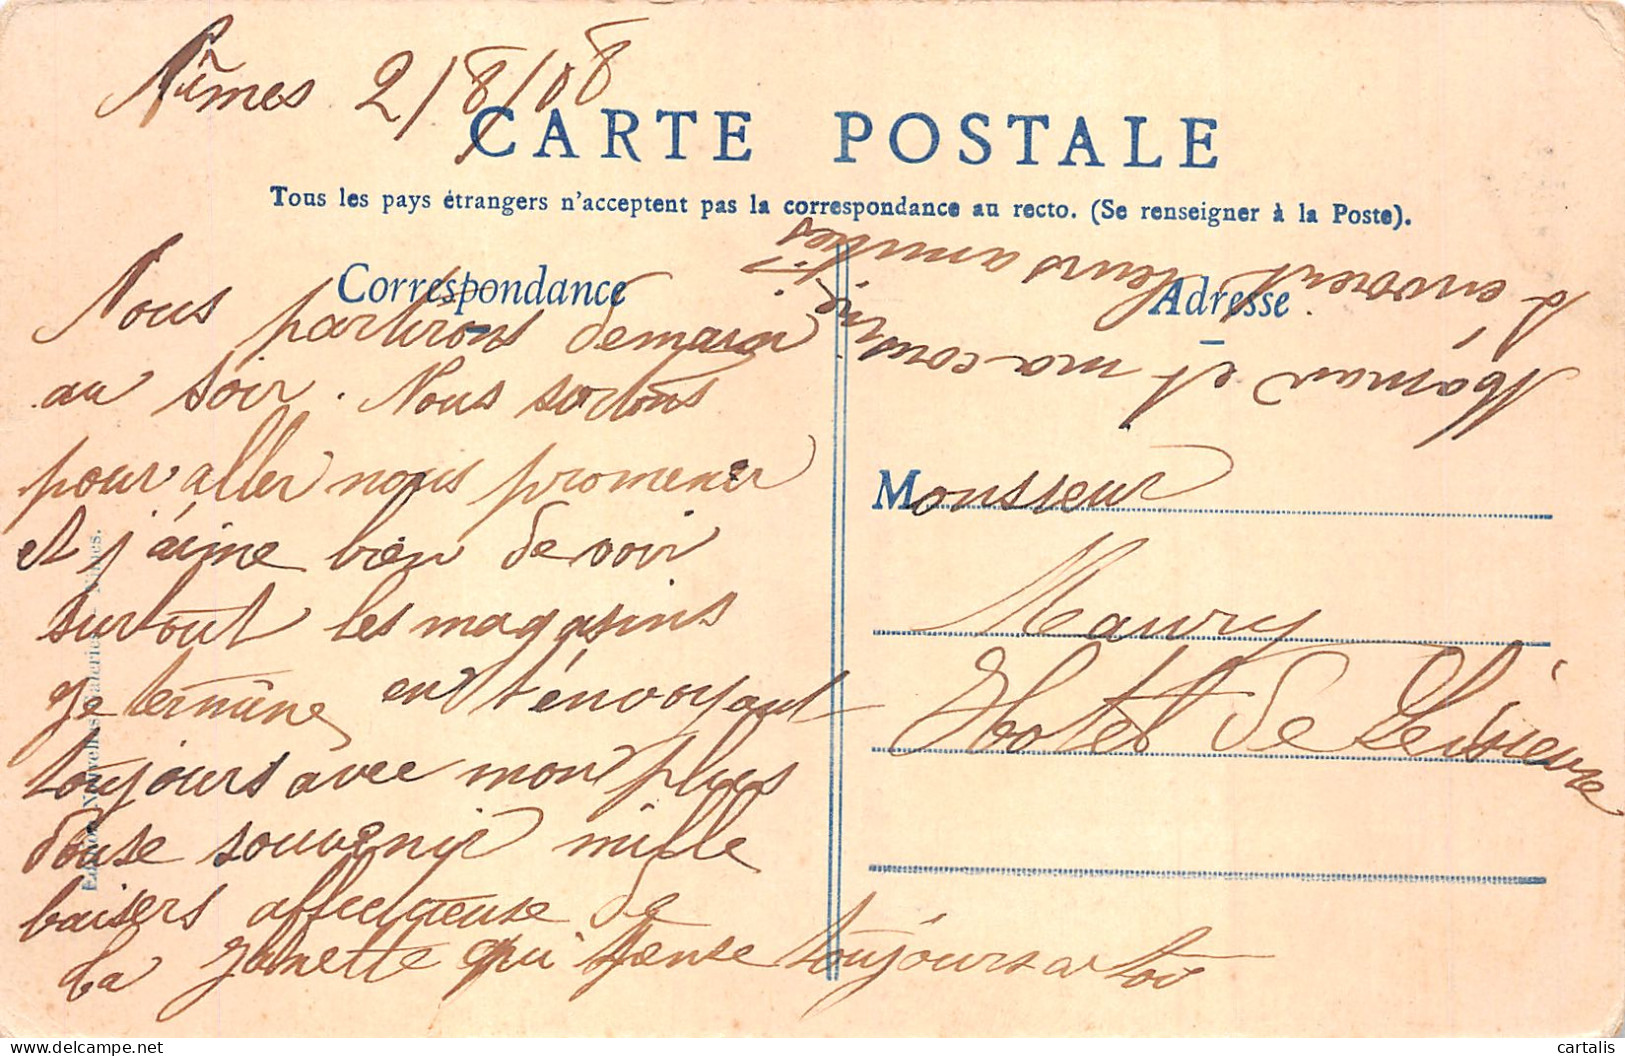 Nîmes 2/8/08
CARTE POSTALE
Tous les pays étrangers n'acceptent pas la correspondance au recto. (Se renseigner à la Poste).
Correspondance
Nous partirons demain
au soir. Nous sortons
pour aller nous promener
et j'aime bien de voir
surtout les magasins
je termine en t'envoyant
toujours avec mon plus
douse souvenir mille
baisers affectueuse de
ta Janette qui pense toujours a toi
Edition Nouvelles Galeries. Nîmes.
Adresse
Maman et ma cousine
t'envoient leurs amitiés
Monsieur
Maury
Hotel de
cartalis
delcampe.net